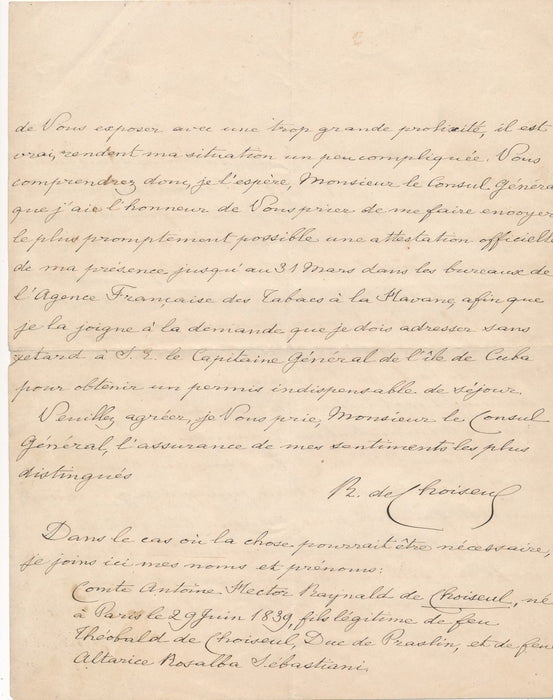 de Vous exposer avec une trop grande prolixité, il est
vrai, rendent ma situation un peu compliquée. Vous
comprendrez donc, je l'espère, Monsieur le Consul Général
que j'aie l'honneur de Vous prier de me faire envoyer
le plus promptement possible une attestation officielle
de ma présence jusqu'au 31 Mars dans les bureaux de
l'Agence Française des Tabacs à la Havane, afin que
je la joigne à la demande que je dois adresser sans
retard à S. E. le Capitaine Général de l'île de Cuba
pour obtenir un permis indispensable de séjour.
Veuillez agréer, je Vous prie, Monsieur le Consul
Général, l'assurance de mes sentiments les plus
distingués
R. de Choiseul
Dans le cas où la chose pourrait être nécessaire,
je joins ici mes noms et prénoms:
Comte Antoine Hector Raynald de Choiseul, né
à Paris le 29 Juin 1839, fils légitime de feu
Théobald de Choiseul, Duc de Praslin, et de feu
Altarice Rosalba Sebastiani.